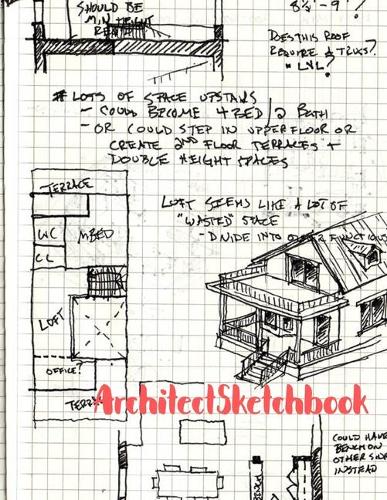 SHOULD BE
MIN. HEIGHT
8¼' - 9'?
DOES THIS ROOF
REQUIRE A TRUSS?
* LVL?
# LOTS OF SPACE UPSTAIRS
- COULD BECOME 4 BED/2 BATH
- OR COULD STEP IN UPPER FLOOR OR
CREATE 2ND FLOOR TERRACES +
DOUBLE HEIGHT SPACES
TERRACE
WC
MBED
CL
LOFT SEEMS LIKE A LOT OF
"WASTED" SPACE
- DIVIDE INTO
LOFT
OFFICE?
TERRA
#ArchitectSketchbook
COULD HAVE
BENCH ON
OTHER SIDE
INSTEAD